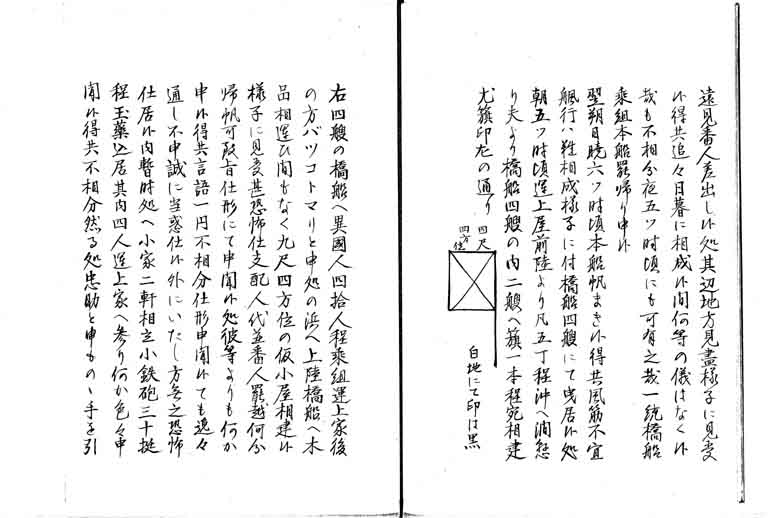 遠見番人差出し候処其辺地方見盡様子に見受
候得共追々日暮に相成候間何等の儀はなく候
哉も不相分夜五ツ時頃にも可有之哉一統橋船
乗組本船罷帰り申候
翌朔日暁六ツ時頃本船帆まき候得共風筋不宜
颿行ハ難相成様子に付橋船四艘にて曳居候処
朝五ツ時頃運上屋前陸より凡五丁程沖へ澗懸
り夫より橋船四艘の内二艘へ籏一本程宛相建
尤籏印左の通り
四尺
四方位
白地にて印は黒
右四艘の橋船へ異國人四拾人程乗組運上家後
の方バツコトマリと申処の浜へ上陸橋船へ木
品相運ひ間もなく九尺四方位の仮小屋相建候
様子に見受甚恐怖仕支配人代並番人罷越何分
帰帆可致旨仕形にて申聞候処彼等よりも何か
申候得共言語一円不相分仕形申聞候ても逸々
通し不申誠に当惑仕候外にいたし方無之恐怖
仕居候内暫時処へ小家二軒相立小鉄砲三十挺
程玉薬込居其内四人運上家へ参り何か色々申
聞候得共不相分然る処忠助と申もの手を引